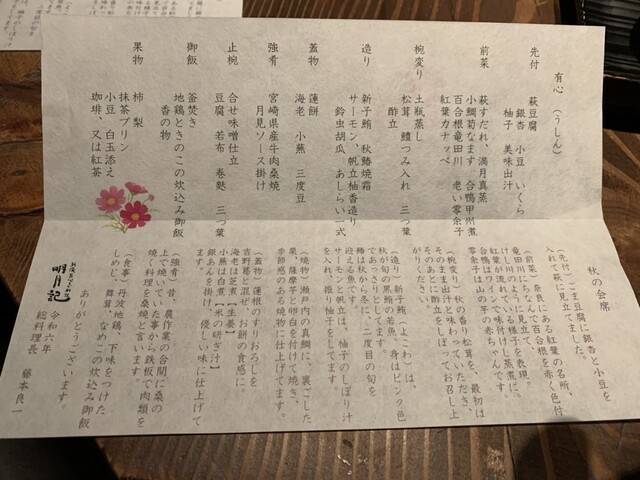 秋の会席
有心 (うしん)
先付
萩豆腐
銀杏 小豆 いくら
柚子 美味出汁
前菜
萩すだれ、満月真蒸
小鯛菊なます 合鴨甲州煮
百合根竜田川 老い零余子
紅葉カナッペ
椀変り
土瓶蒸し
松茸 鱧つみ入れ 三つ葉
酢立
造り
新子鮪 秋鯵焼霜
サーモン、帆立柚香造り
鈴虫胡瓜 あしらい一式
蓋物
蓮餅
海老 小蕪 三度豆
強肴
宮崎県産牛肉桑焼
月見ソース掛け
止椀
合せ味噌仕立
豆腐 若布 巻麩 三つ葉
御飯
釜焚き
地鶏ときのこの炊込み御飯
香の物
果物
柿 梨
抹茶プリン
小豆 白玉添え
珈琲、又は紅茶
(先付)ごま豆腐に銀杏と小豆を
入れて萩に見立てました。
(前菜)奈良にある紅葉の名所、
竜田川にちなんで百合根を赤く色付
し川に流れている様子を表現。
合鴨は赤ワインで味付けし蒸煮に。
零余子は山の芋の赤ちゃんです。
(椀変り)秋の香り松茸を、最初は
そのまま出汁と味わっていただき、
そのあとに酢立をしぼってお召し上
がりください。
(造り)新子鮪(よこわ)は、
秋が旬の黒鮪の若魚。身はピンク色
であっさりとしてます。
鯵は秋から冬に、二度目の旬を
迎える魚です。
サーモンと帆立は、柚子のしぼり汁
を入れ、振り柚子をしてます。
(焼物)瀬戸内の真鯛に、裏ごした
栗、薩摩芋と卵白を付けて焼き、
季節感のある焼物に仕上げてます。
(蓋物)蓮根のすりおろしを
吉野葛と混ぜ、お餅の食感に。
海老は芝煮【生姜】
小蕪は白煮【米の研ぎ汁】
銀あんを掛け、優しい味に仕上げて
ます。
(強肴)昔、農作業の合間に桑の
上で焼いていた事から鉄板で肉類を
焼く料理を桑焼と言います。
(食事)丹波地鶏、下味をつけた
しめじ、舞茸、なめこの炊込み御飯
ありがとうございます。
令和六年
総料理長 藤本良一
明月記